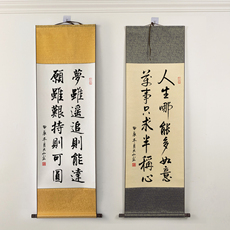 夢雖遥追則能達
願雖艱持則可圓
人生哪能多如意
萬事只求半稱心